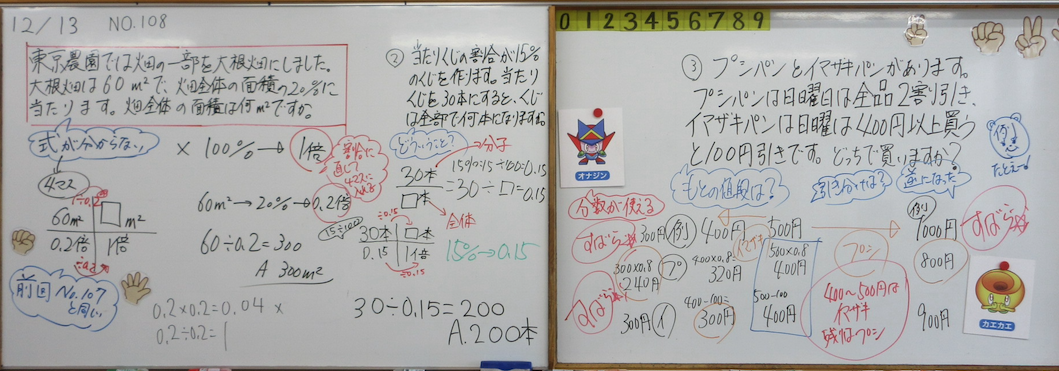 12/13 NO.108
東京農園では畑の一部を大根畑にしました。
大根畑は60㎡で、畑全体の面積の20%に
当たります。畑全体の面積は何㎡ですか。
式が分からない
× 100%→1倍
割合に
直して
4マスに
入れる
4マス
60㎡ □㎡
0.2倍 1倍
60㎡→20%→0.2倍
60÷0.2=300
A 300㎡
前回
No.107
と同じ
0.2×0.2=0.04 ×
0.2÷0.2=1
② 当たりくじの割合が15%
のくじを作ります。当たり
くじを30本にすると、くじ
は全部で何本になりますか。
どういうこと?
分子
15%=15÷100=0.15
30本
□本
=30÷□=0.15
全体
15÷100
÷0.15
30本 □本
0.15 1倍
÷0.15
15%→0.15
30÷0.15=200
A.200本
0 1 2 3 4 5 6 7 8 9
③ プシパンとイマザキパンがあります。
プシパンは日曜日は全品2割引き、
イマザキパンは日曜は400円以上買う
と100円引きです。どっちで買いますか?
例
たとえば
オナジン
もとの値段は?
逆になった
分数が使える
すばらしい
300円 例 400円 500円 例 1000円
すばらしい
300×0.8
240円
プ
400×0.8
320円
500×0.8
400円
プシ
800円
すばらしい
300円 イ
400-100=
300円
500-100
400円
400~500円は
イマザキ
残りはプシ
900円
カエカエ